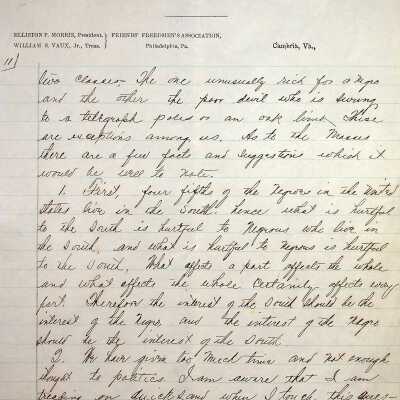 ELLISTON P. MORRIS, President.
WILLIAM S. VAUX, Jr., Treas.
FRIENDS' FREEDMEN'S ASSOCIATION,
Philadelphia, Pa.
Cambria, Va.,
11)
two classes. The one unusually rich for a Negro
and the other the poor devil who is swung
to a telegraph pole or an oak limb. These
are exceptions among us. As to the Masses
there are a few facts and suggestions which it
would be well to note.
1. First, four fifths of the Negroes in the United
States live in the South. Hence what is hurtful
to the South is hurtful to Negroes who live in
the South, and what is hurtful to Negroes is hurtful
to the South. What affects a part affects the whole
and what affects the whole certainly affects every
part. Therefore the interest of the South should be the
interest of the Negro and the interest of the Negro
should be the interest of the South.
2. We have given too much time and not enough
thought to politics. I am aware that I am
treading on quicksand when I touch this ques-